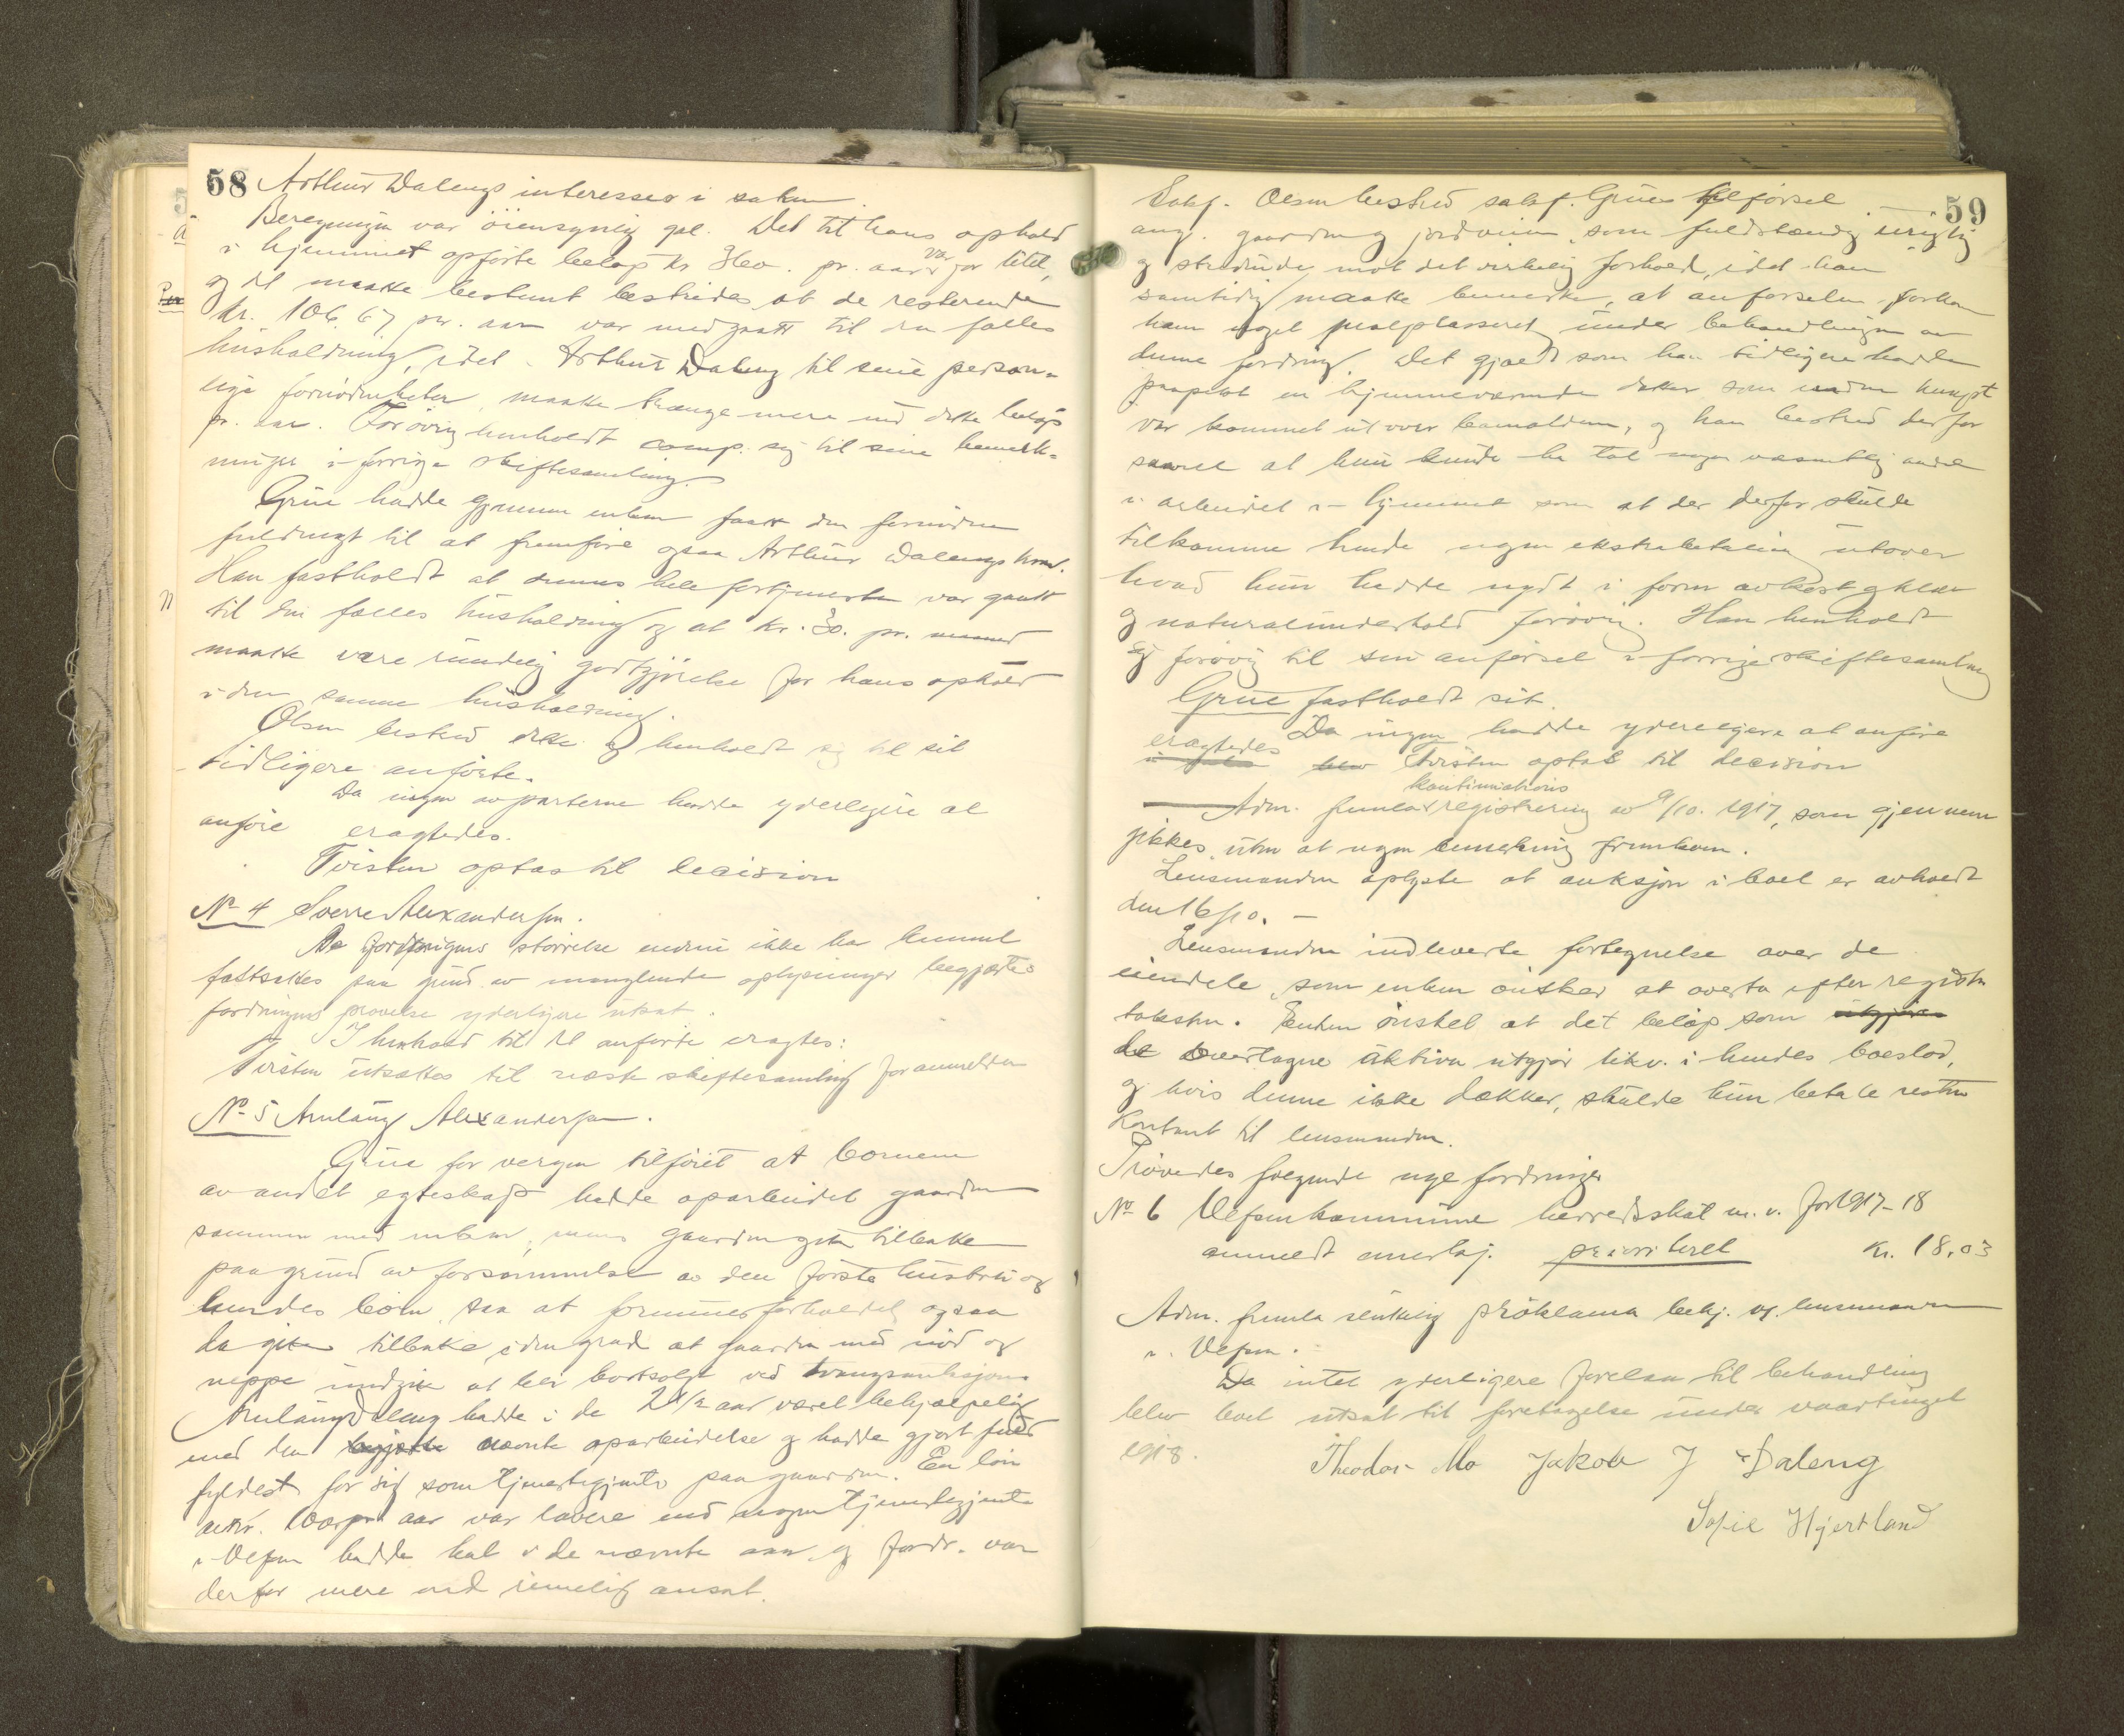 58
Arthur Dalengs interesser i saken.
Beregningen var öiensynlig gal. Det til hans ophold
i hjemmet opförte belöp kr. pr. aar var for litet,
og det maatte bestemt bestrides at de resterende
kr. 106.67 pr. aar var medgaatt til den fælles
husholdning, idet Arthur Daleng til sine person-
lige fornödenheter maatte trænge mere end dette belöp
pr. aar. Forövrig henholdt comp. sig til sine bemerk-
ninger i forrige skiftesamling.
Grüe hadde gjennem enken faatt den fornödne
fuldmagt til at fremföre ogsaa Arthur Dalengs krav.
Han fastholdt at dennes hele fortjeneste var gaatt
til den fælles husholdning og at kr. 30. pr. maaned
maatte være rundelig godtgjörelse for hans ophold
i den samme husholdning.
Olsen bestred dette og henholdt sig til sit
tidligere anförte.
Da ingen av parterne hadde yderligere at
anföre eragtedes.
Tvisten optas til decision
No 4 Sverre Alexandersen.
Da fordringens störrelse endnu ikke har kunnet
fastsættes paa grund av manglende oplysninger begjærtes
fordringens prövelse yderligere utsat.
I henhold til det anförte eragtes:
Tvisten utsættes til næste skiftesamling for anmelden
No 5 Arnlaug Alexandersen.
Grüe for vergen tilföiet at barnene
av andet egteskap hadde oparbeidet gaarden
sammen med enken, mens gaarden gikk tilbake
paa grund av forsömmelse av den förste hustru og
hendes börn saa at formuesforholdet ogsaa
da gikk tilbake i den grad at gaarden med nöd og
neppe undgikk at blev bortsolgt ved tvangsauktion.
Arnlaug Daleng hadde i de 2 1/2 aar været behjælpelig
med den begjærte nævnte oparbeidelse og hadde gjort fuld
fyldest for sig som tjenestegjente paa gaarden. En lön
av kr. 100 pr. aar var lavere end nogen tjenestegjente
i Vefsen hadde hat i de nævnte aar og fordr. var
derfor mere end rimelig ansat.
59
Sakf. Olsen bestred sakf. Grües tilförsel
ang. gaarden og jordveien som fuldstændig urigtig
og stridende mot det virkelig forhold, idet han
samtidig maatte bemerke, at anförselen forkom
ham noget malplasseret under behandlingen av
denne fordring. Det gjældt som han tidligere hadde
paapekt en hjemmeværende datter som endnu knapt
var kommet ut over barnealderen, og han bestred derfor
saavel at hun kunde ha tat nogen væsentlig andel
i arbeidet i hjemmet som at der derfor skulde
tilkomme hende nogen ekstrabetaling utover
hvad hun hadde nydt i form av kost klær
og naturalunderhold forövrig. Han henholdt
sig forövrig til sin anförsel i forrige skiftesamling
Grüe fastholdt sit.
Da ingen hadde yderligere at anföre
eragtedes
blev tvisten optat til decision
kontinuations
Adm. fremla registrering av 9/10. 1917, som gjennem
gikkes uten at nogen bemerkning fremkom.
Lensmanden oplyste at auksjon i boet er avholdt
den 16/10. -
Lensmanden indleverte fortegnelse over de
eiendele som enken önsker at overta efter registr.
taksten. Enken önsket at det belöp som utgjöres
de overtagne aktiva utgjör likv. i hendes boeslod,
og hvis denne ikke dækker, skulde hun betale resten
kontant til lensmanden.
Prövedes fölgende nye fordringer
No 6 Vefsen kommune herredsskat m. v. for 1917-18
anmeldt prioritet kr. 18,03
Adm. fremla proklama bekj. av lensmanden
i Vefsen.
Da intet yderligere forelaa til behandling
blev boet utsat til foretagelse under vaartinget
1918.
Theodor Mo Jakob J Daleng
Sofie Hjertland